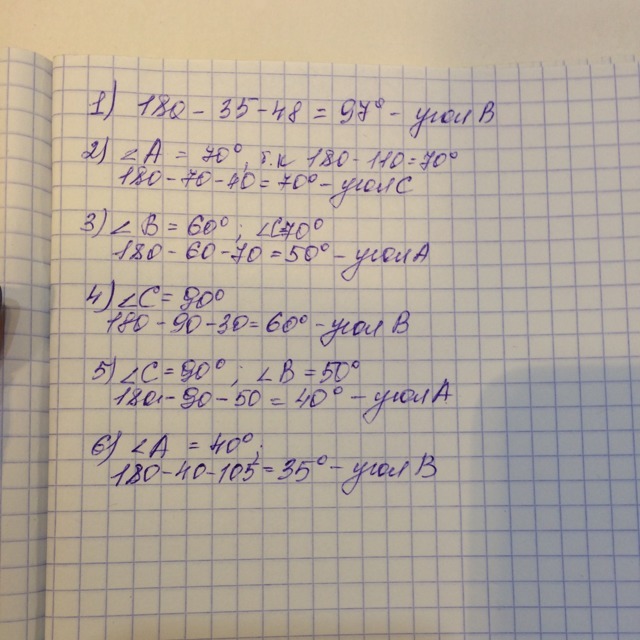 1) 180 - 35 - 48 = 97° - угол B
2) ∠A = 70°, т.к 180 - 110 = 70°
180 - 70 - 40 = 70° - угол C
3) ∠B = 60°; ∠C 70°
180 - 60 - 70 = 50° - угол A
4) ∠C = 90°
180 - 90 - 30 = 60° - угол B
5) ∠C = 90°; ∠B = 50°
180 - 90 - 50 = 40° - угол A
6) ∠A = 40°;
180 - 40 - 105 = 35° - угол B